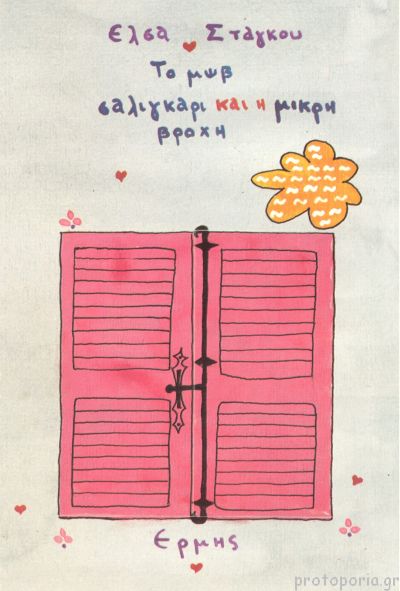 Ελσα Σταγκου
Το μωβ
σαλιγκαρι και η μικρη
βροχη
Ερμης
protoporia.gr